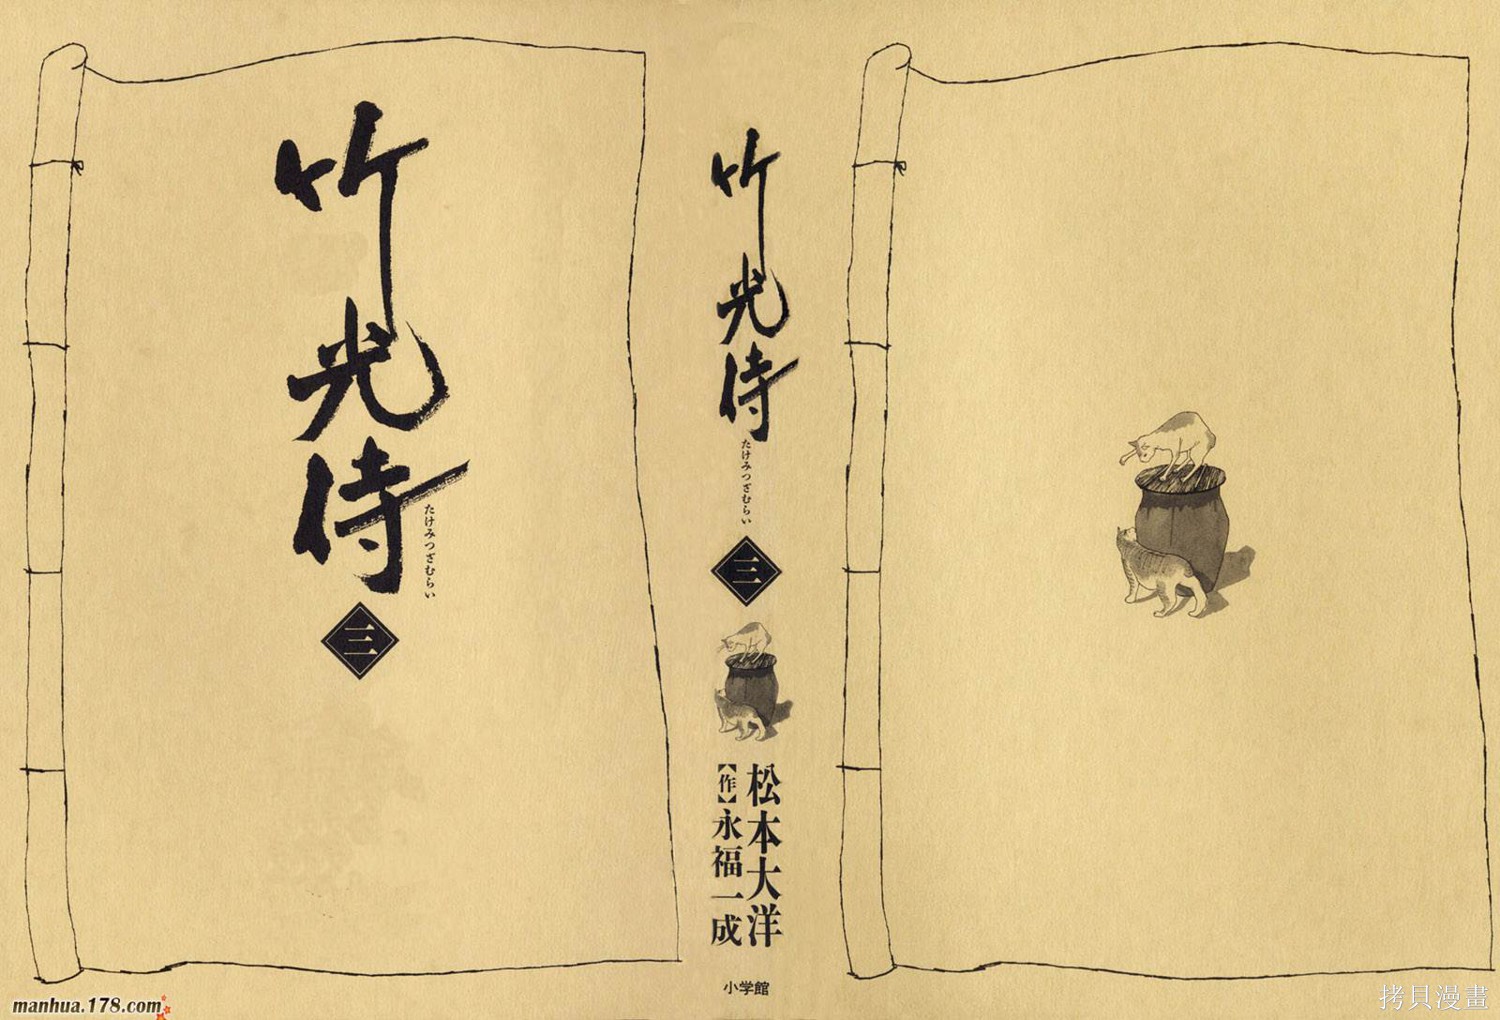 竹光侍
たけみつざむらい
三
竹光侍
たけみつざむらい
三
松本大洋
【作】永福一成
小学館
manhua.178.com
拷貝漫畫